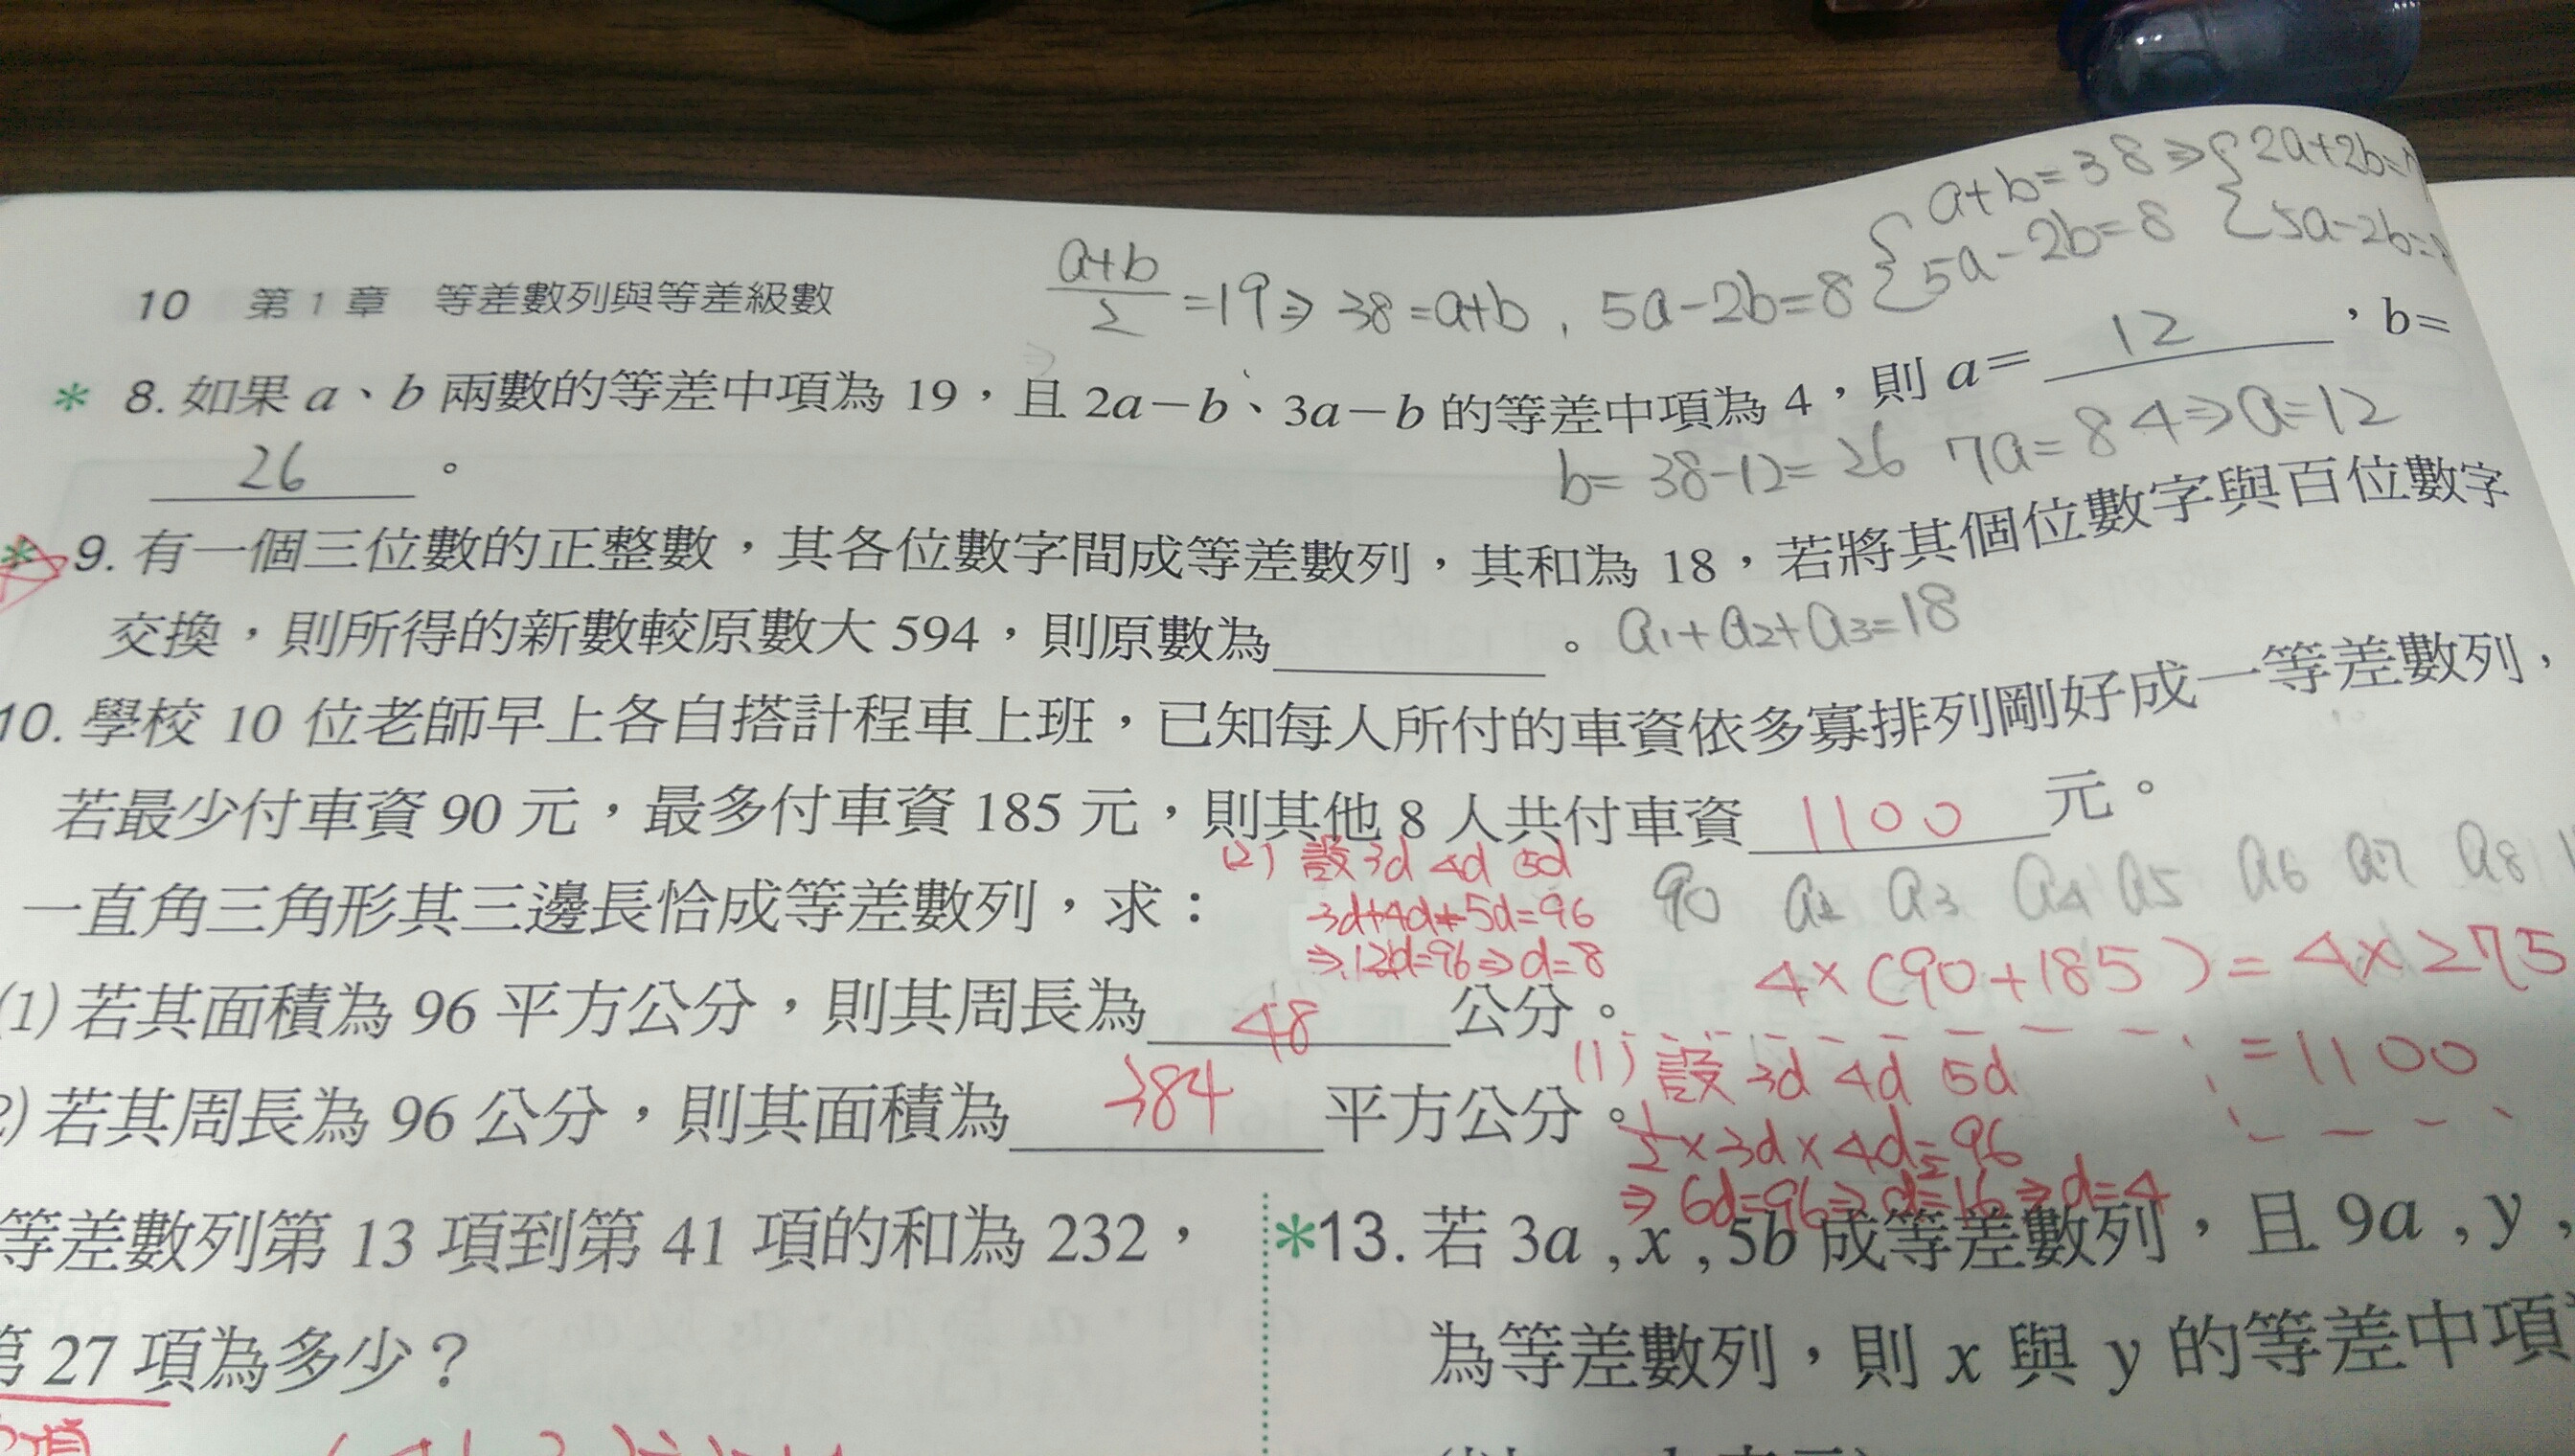 a+b=38⇒{2a+2b=
{5a-2b=8 {5a-2b=
10 第1章 等差數列與等差級數
a+b/2=19⇒38=a+b,5a-2b=8
* 8. 如果 a、b 兩數的等差中項為 19，且 2a－b、3a－b 的等差中項為 4，則 a= 12 ，b=
26 。
b=38-12=26 7a=84⇒a=12
* 9. 有一個三位數的正整數，其各位數字間成等差數列，其和為 18，若將其個位數字與百位數字
交換，則所得的新數較原數大 594，則原數為 。 a1+a2+a3=18
10. 學校 10 位老師早上各自搭計程車上班，已知每人所付的車資依多寡排列剛好成一等差數列，
若最少付車資 90 元，最多付車資 185 元，則其他 8 人共付車資 1100 元。
90 a2 a3 a4 a5 a6 a7 a8
4×(90+185)=4×275
=1100
一直角三角形其三邊長恰成等差數列，求：
(2) 設 3d 4d 5d
3d+4d+5d=96
⇒12d=96⇒d=8
(1) 若其面積為 96 平方公分，則其周長為 48 公分。
2) 若其周長為 96 公分，則其面積為 384 平方公分。
(1) 設 3d 4d 5d
1/2×3d×4d=96
⇒6d²=96⇒d²=16⇒d=4
等差數列第 13 項到第 41 項的和為 232，
第 27 項為多少？
*13. 若 3a , x , 5b 成等差數列，且 9a , y ,
為等差數列，則 x 與 y 的等差中項